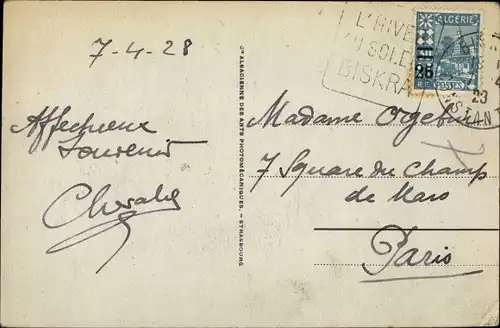 7-4-28
Affectueux
Souvenir
Cie ALSACIENNE DES ARTS PHOTOMÉCANIQUES - STRASBOURG
L'HIVE
AU SOLE
BISKRA
ALGÉRIE
25
POSTES
23
Madame
7 Square du Champ
de Mars
Paris